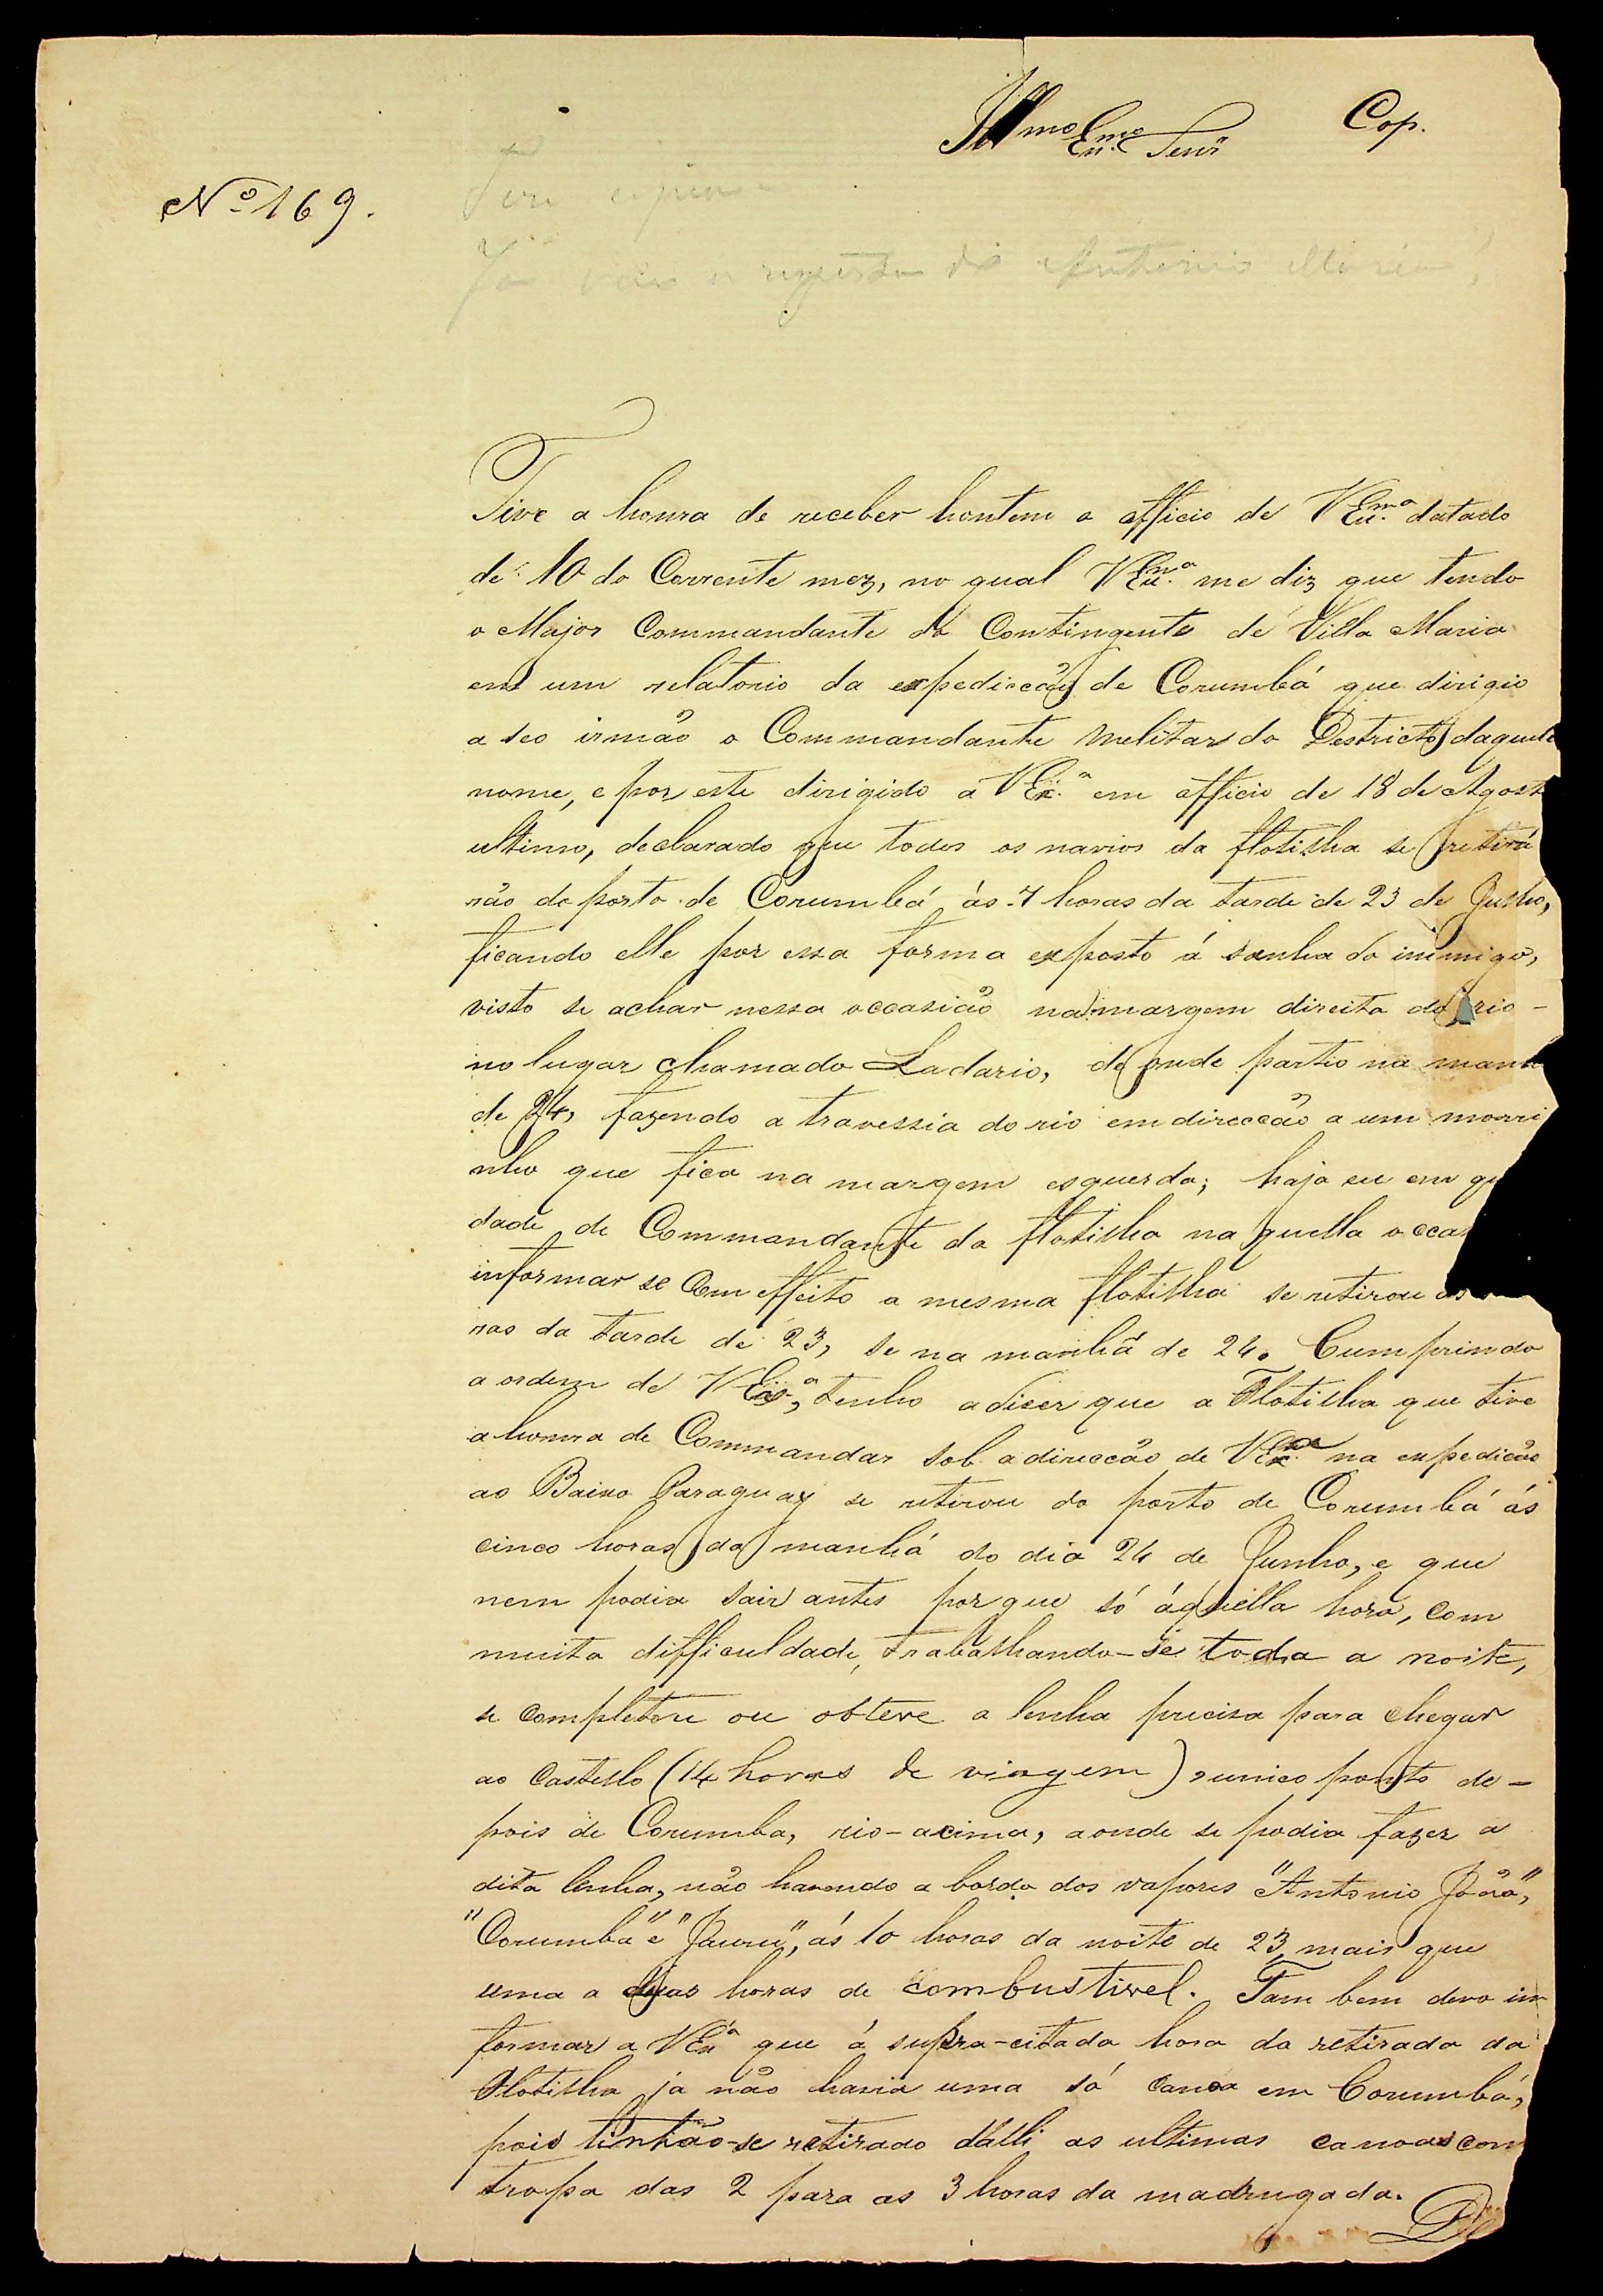 Cop.
Ill.mo Ex.mo Senr
Nº 169.
Tive a honra de receber hontem o officio de V Ex.ª datado
de 10 do Corrente mez, no qual V Ex.ª me diz que tendo
o Major Commandante do Contingente de Villa Maria
em um relatorio da expedicção de Corumbá que dirigio
a seo irmão o Commandante Melitar do Destricto daquele
nome, e por este dirigido a V Ex.ª em officio de 18 de Agost
ultimo, declarado que todos os navios da flotilha se retirá
rão do porto de Corumbá ás 7 horas da tarde de 23 de Junho,
ficando elle por essa forma exposto á sanha do inimigo,
visto se achar nessa occasião na margem direita do rio -
no lugar chamado Ladario, de onde partio na manh
de 24, fazendo a travessia do rio em direcção a um morri
nho que fica na margem esquerda; haja eu em qu
dade de Commandante da flotilha na quella occas
informar se Com effeito a mesma flotilha se retirou as
ras da tarde de 23, se na manhã de 24. Cumprindo
a ordem de V Ex.ª, tenho a dicer que a Flotilha que tive
a honra de Commandar sob a direcção de V Ex.ª na expedição
ao Baixo Paraguay se retirou do porto de Corumbá ás
cinco horas da manhá do dia 24 de Junho, e que
nem podia sair antes por que só áquella hora, com
muita difficuldade, trabalhando-se toda a noite,
se completou ou obteve a lenha precisa para chegar
ao Castello (14 horas de viagem), unico ponto de -
pois de Corumba, rio-acima, aonde se podia fazer a
dita lenha, não havendo a bordo dos vapores "Antonio João",
"Corumbá" e "Jaurú", ás 10 horas da noite de 23 mais que
uma a duas horas de combustivel. Tam bem devo in
formar a V Ex.ª que á supra-citada hora da retirada da
Flotilha ja não havia uma só canoa em Corumbá,
pois tinhão-se retirado d'alli as ultimas canoas com
tropa das 2 para as 3 horas da madrugada.